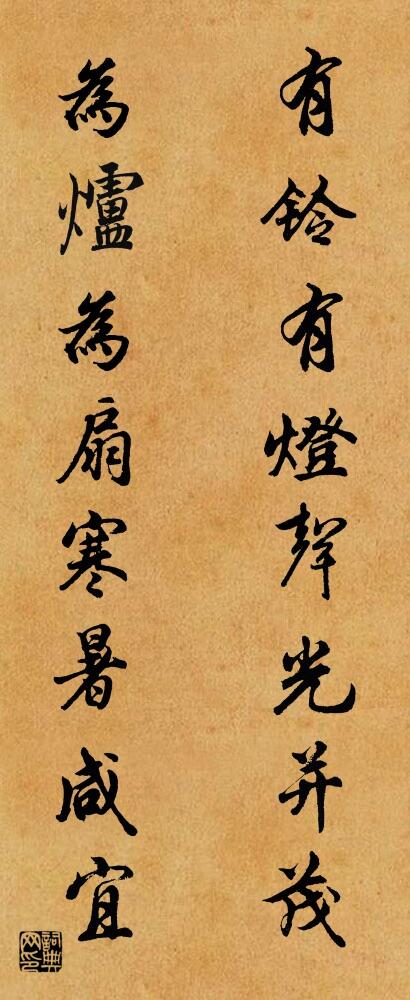 有鈴有燈聲光并茂
為爐為扇寒暑咸宜
詞典网印